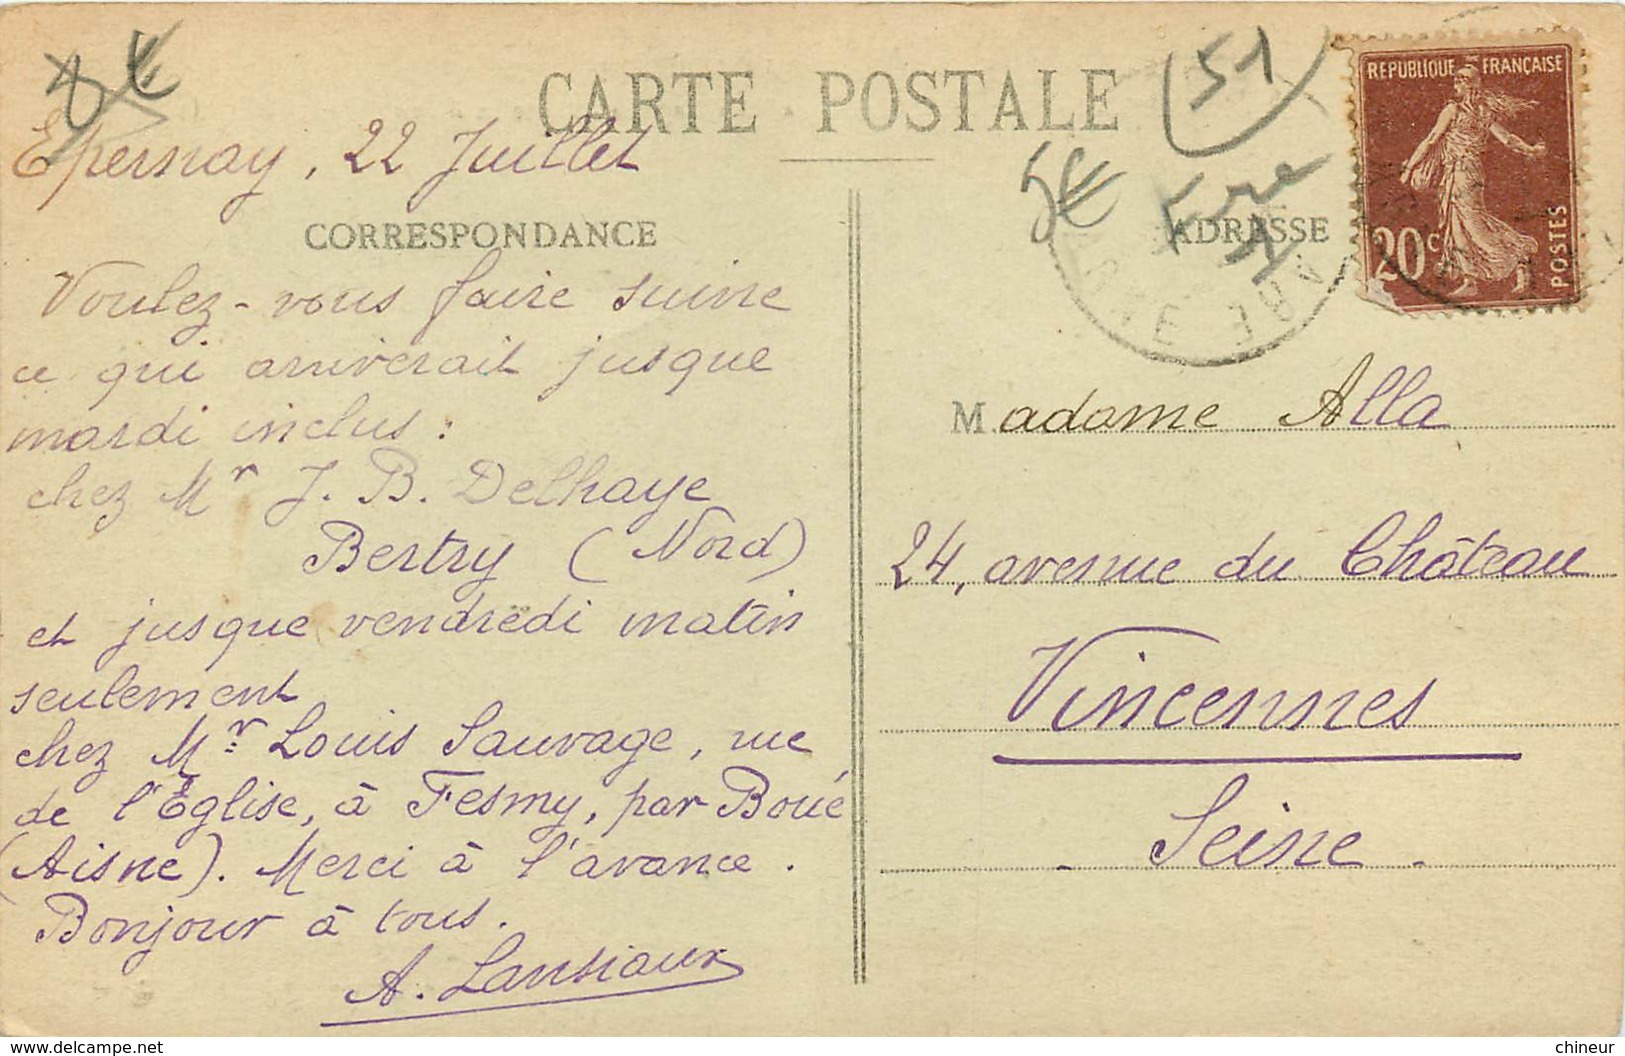 8€
CARTE POSTALE
51
Epernay, 22 Juillet
5€
Fre
CORRESPONDANCE
ADRESSE
REPUBLIQUE FRANÇAISE
20c
POSTES
Voulez-vous faire suivre
ce qui arriverait jusque
mardi inclus :
chez Mr J. B. Delhaye
Bertry (Nord)
et jusque vendredi matin
seulement
chez Mr Louis Sauvage, rue
de l'Eglise, à Fesmy, par Boué
(Aisne). Merci à l'avance.
Bonjour à tous.
A. Lansiaux
Madame Alla
24, avenue du Château
Vincennes
Seine.
www.delcampe.net
chineur